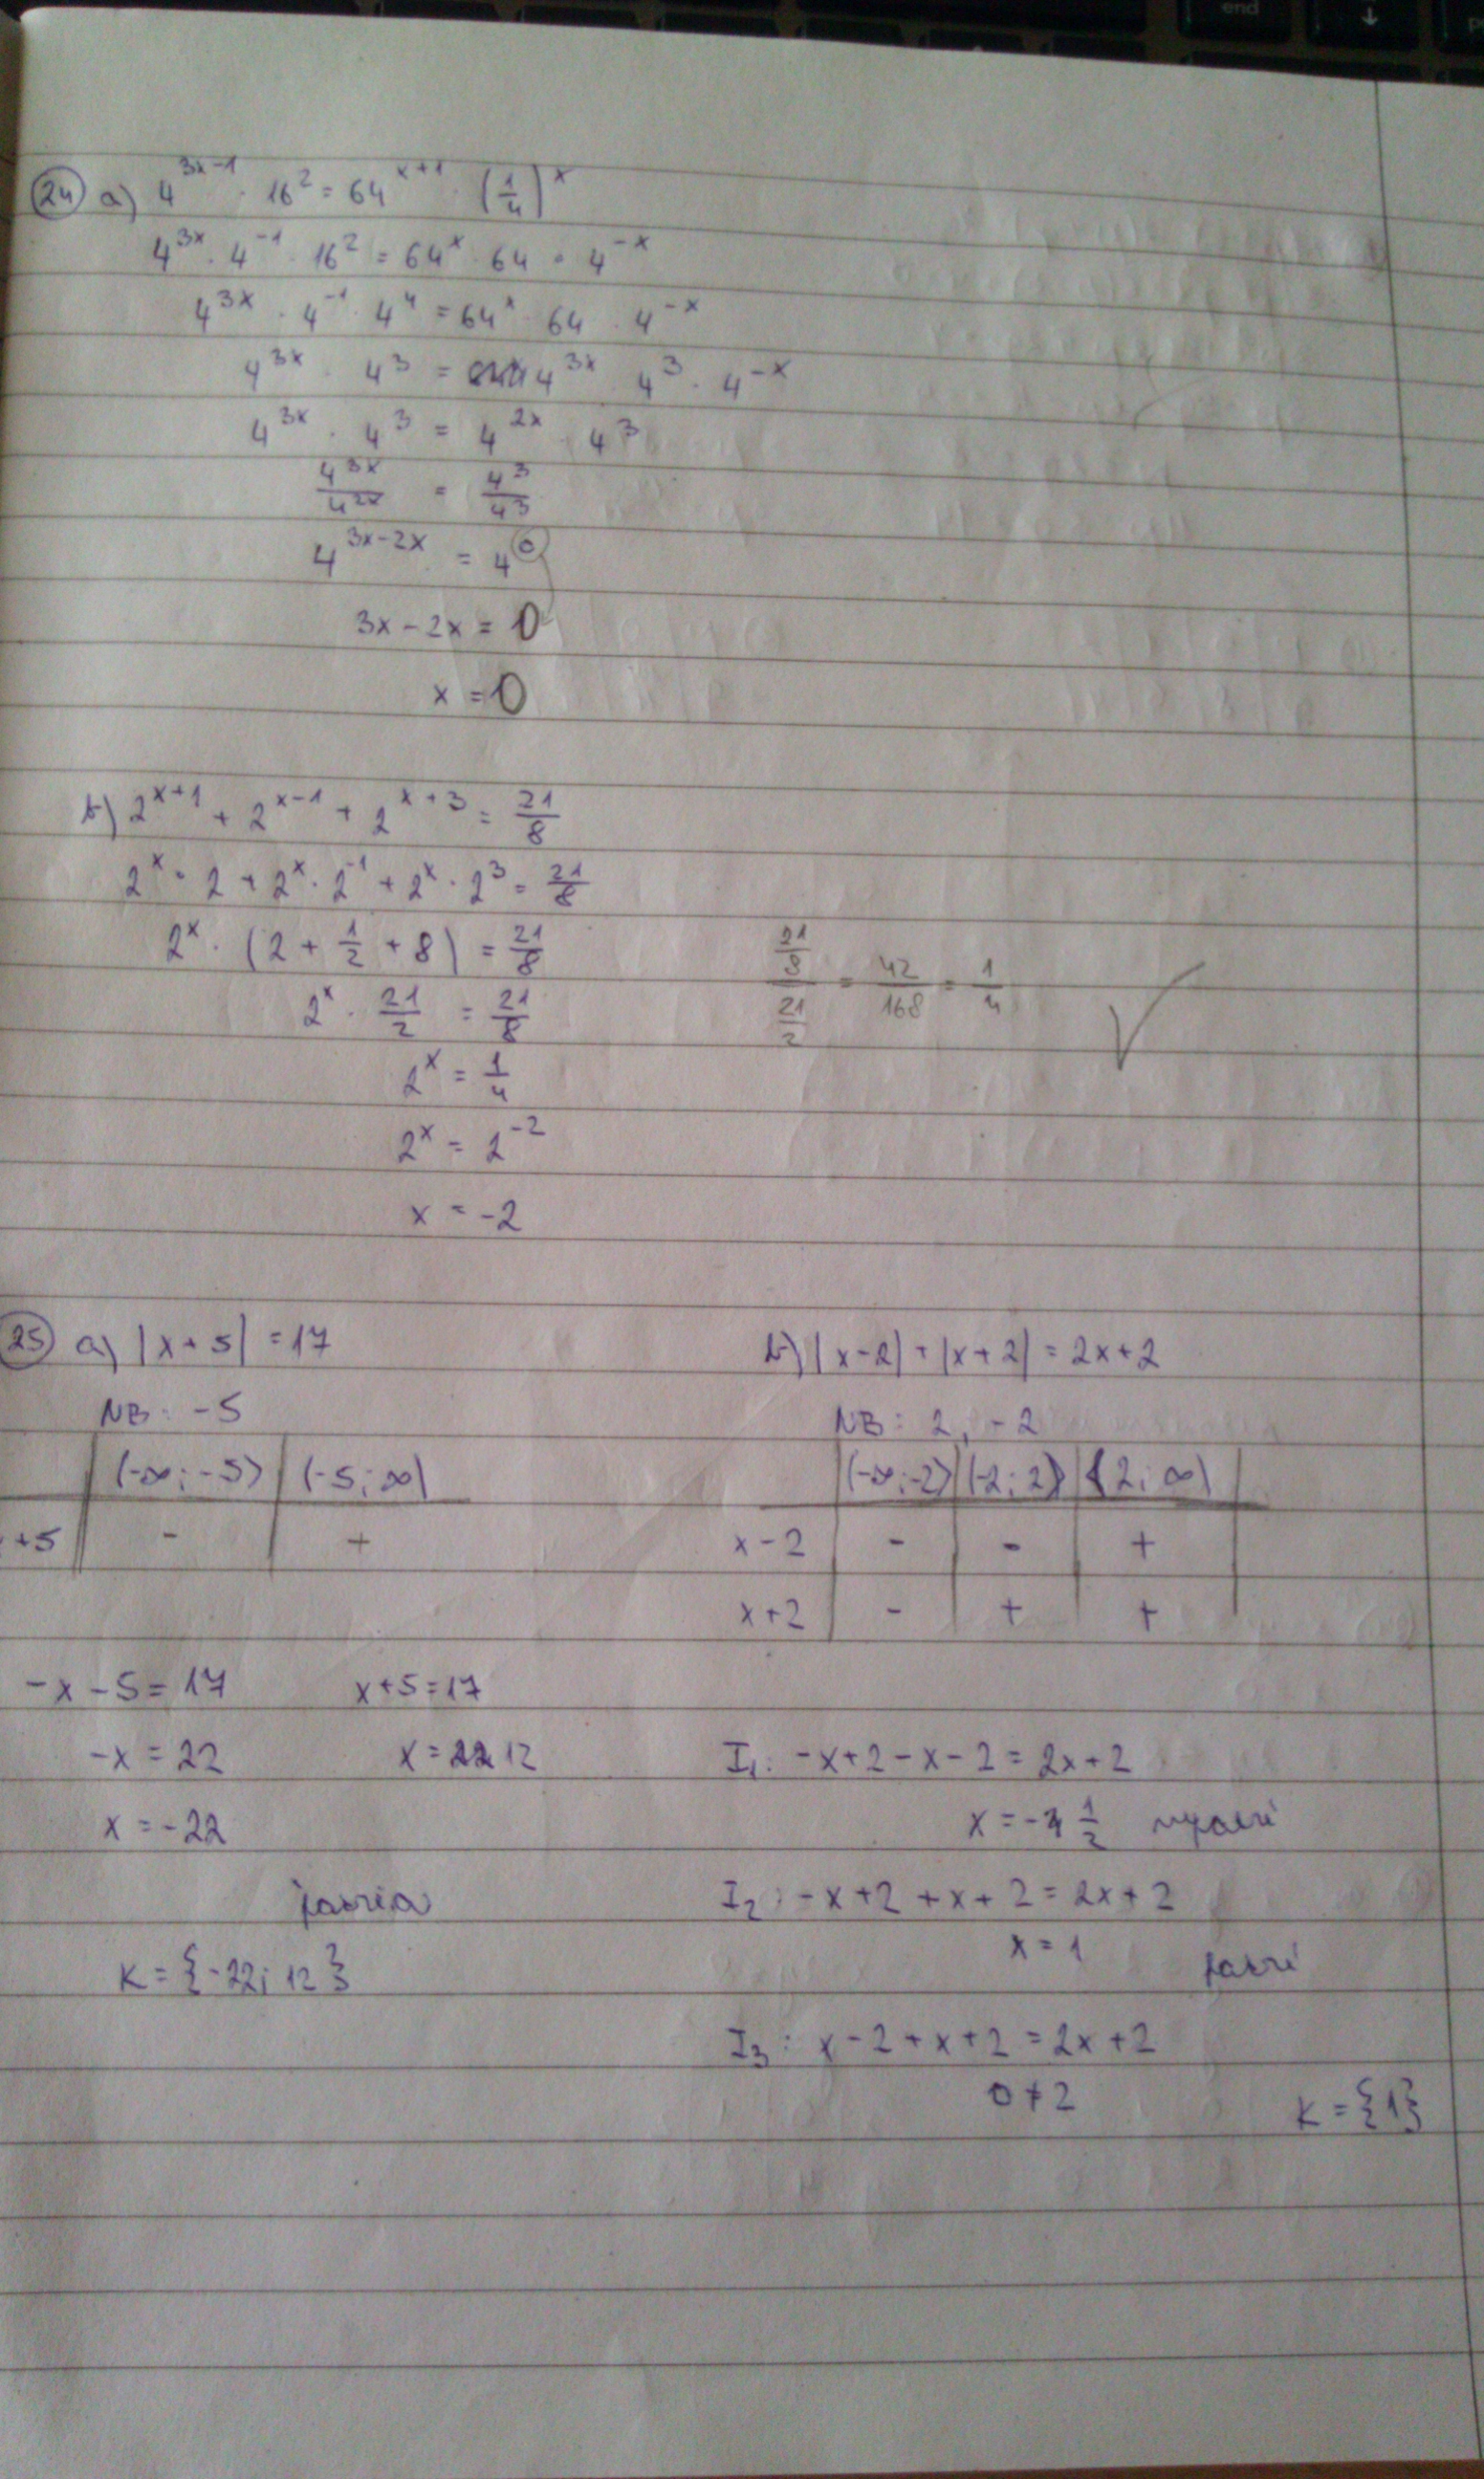 24 a) 4^(3x-1) · 16² = 64^(x+1) · (1/4)^x
4^(3x) · 4^(-1) · 16² = 64^x · 64 · 4^(-x)
4^(3x) · 4^(-1) · 4⁴ = 64^x · 64 · 4^(-x)
4^(3x) · 4³ = 4^(3x) 4³ · 4^(-x)
4^(3x) · 4³ = 4^(2x) · 4³
4^(3x)/4^(2x) = 4³/4³
4^(3x-2x) = 4^0
3x-2x = 0
x = 0
b) 2^(x+1) + 2^(x-1) + 2^(x+3) = 21/8
2^x · 2 + 2^x · 2^(-1) + 2^x · 2³ = 21/8
2^x · (2 + 1/2 + 8) = 21/8
2^x · 21/2 = 21/8
(21/8)/(21/2) = 42/168 = 1/4 ✓
2^x = 1/4
2^x = 2^(-2)
x = -2
25 a) |x+5| = 17
NB: -5
(-∞; -5) (-5; ∞)
+5 - +
-x-5 = 17 x+5=17
-x = 22 x = 12
x = -22
K = {-22; 12}
b) |x-2| + |x+2| = 2x+2
NB: 2, -2
(-∞; -2) (-2; 2) ⟨2; ∞)
x-2 - - +
x+2 - + +
I₁: -x+2-x-2 = 2x+2
x = -1/2
I₂: -x+2+x+2 = 2x+2
x = 1
I₃: x-2+x+2 = 2x+2
0 ≠ 2
K = {1}